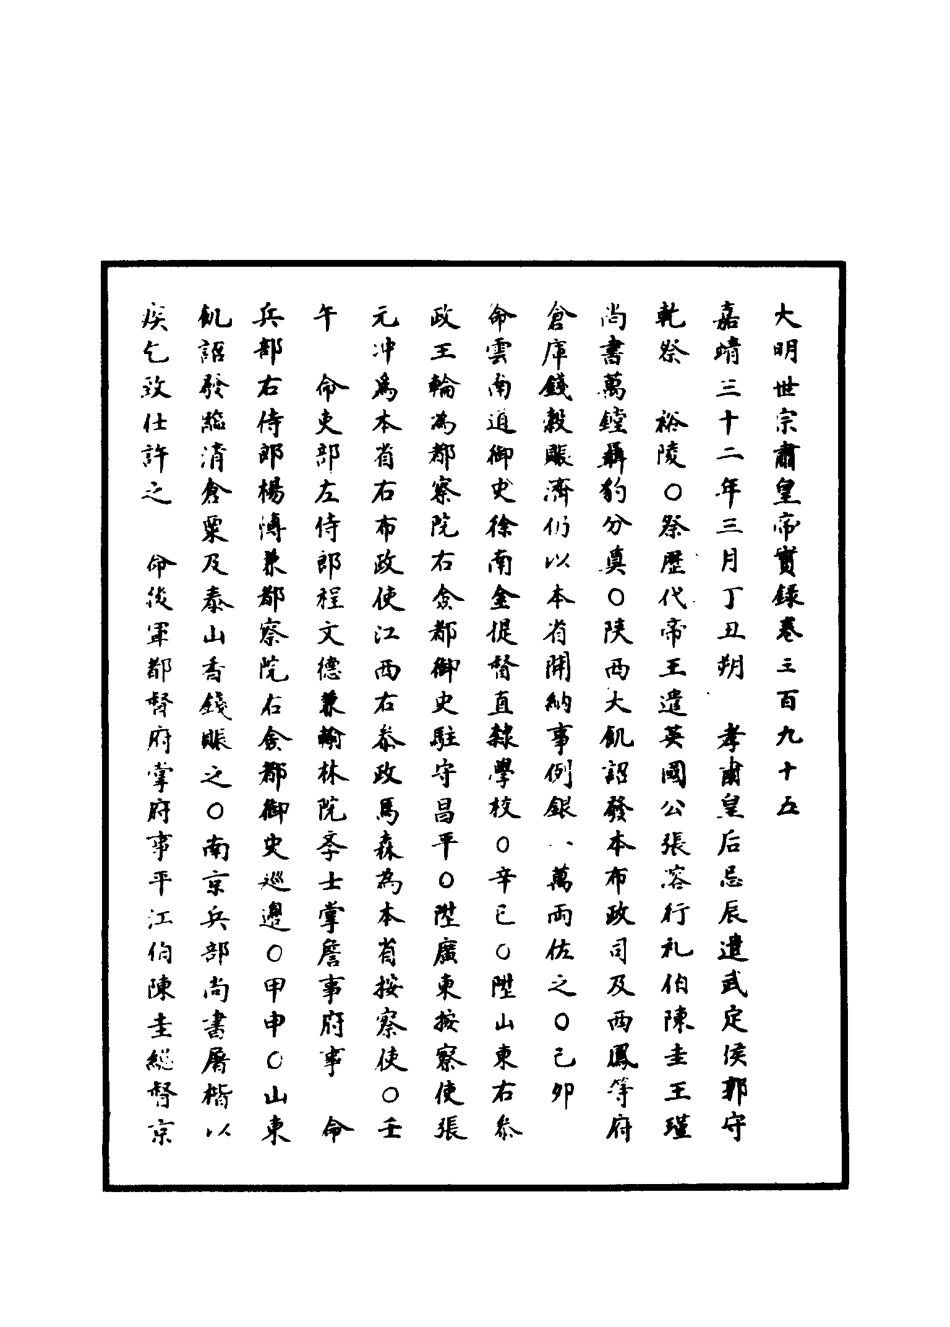 大明世宗肅皇帝實錄卷三百九十五
嘉靖三十二年三月丁丑朔　孝肅皇后忌辰遣武定侯郭守
乾祭　裕陵○祭歷代帝王遣英國公張溶行礼伯陳圭王瑾
尚書萬鏜聶豹分奠○陕西大飢詔發本布政司及西鳳等府
倉庫錢穀賑濟仍以本省開納事例銀八萬兩佐之○己卯
命雲南道御史徐南金提督直隸學校○辛巳○陞山東右參
政王輪為都察院右僉都御史駐守昌平○陞廣東按察使張
元冲為本省右布政使江西右叅政馬森為本省按察使○壬
午　命吏部左侍郎程文德兼翰林院學士掌詹事府事　命
兵部右侍郎楊博兼都察院右僉都御史巡邊○甲申○山東
飢詔發臨清倉粟及泰山香錢賑之○南京兵部尚書屠楷以
疾乞致仕許之　命後軍都督府掌府事平江伯陳圭總督京